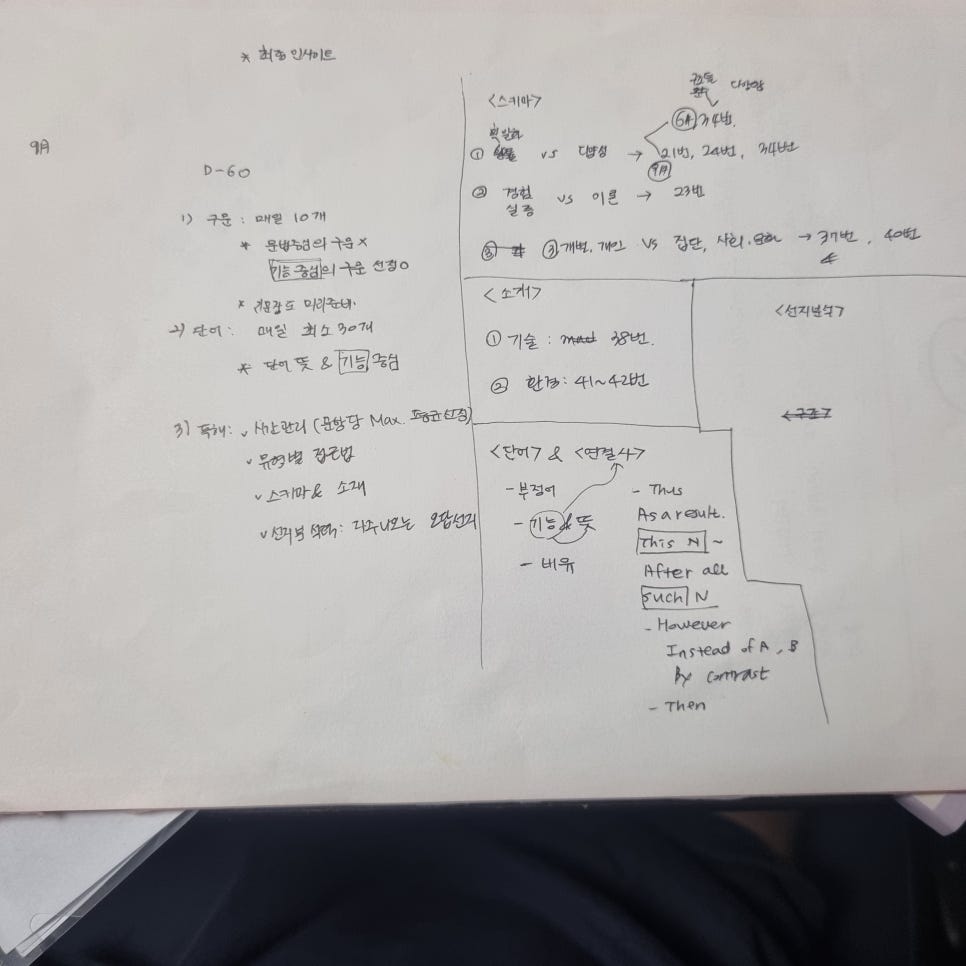 * 최종 인사이트
9月
D-60
1) 구문 : 매일 10개
* 문법중심의 구문 X
기능 중심의 구문 선정 O
* 미리준비.
2) 단어 : 매일 최소 30개
* 단어 뜻 & 기능 중심
3) 독해 : ✓ 시간관리 (문항당 Max.
✓ 유형별 접근법
✓ 스키마 & 소재
✓ 선지분석력 : 자주나오는 오답선지
<스키마>
다양함
6月 34번.
획일화
① vs 다양성 → 21번, 24번, 34번
9月
② 경험 vs 이론 → 23번
실증
③ ③ 개별, 개인 vs 집단, 사회. → 37번, 40번
<소재>
① 기술 : 38번.
② 환경 : 41~42번
<선지분석>
<구조>
<단어> & <연결사>
- 부정어
- 기능 & 뜻
- 비유
- Thus
As a result.
This N ~
After all
such N
- However
Instead of A, B
By contrast
- Then